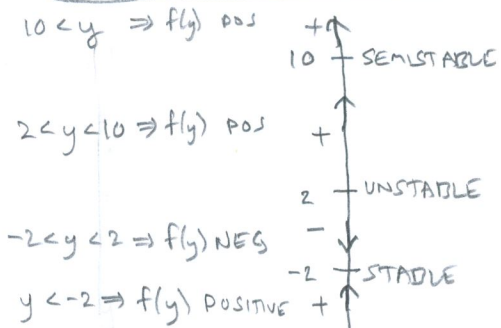 10 < y ⇒ f(y) POS
+
10 SEMISTABLE
2 < y < 10 ⇒ f(y) POS +
2 UNSTABLE
-
-2 < y < 2 ⇒ f(y) NEG
-2 STABLE
y < -2 ⇒ f(y) POSITIVE +